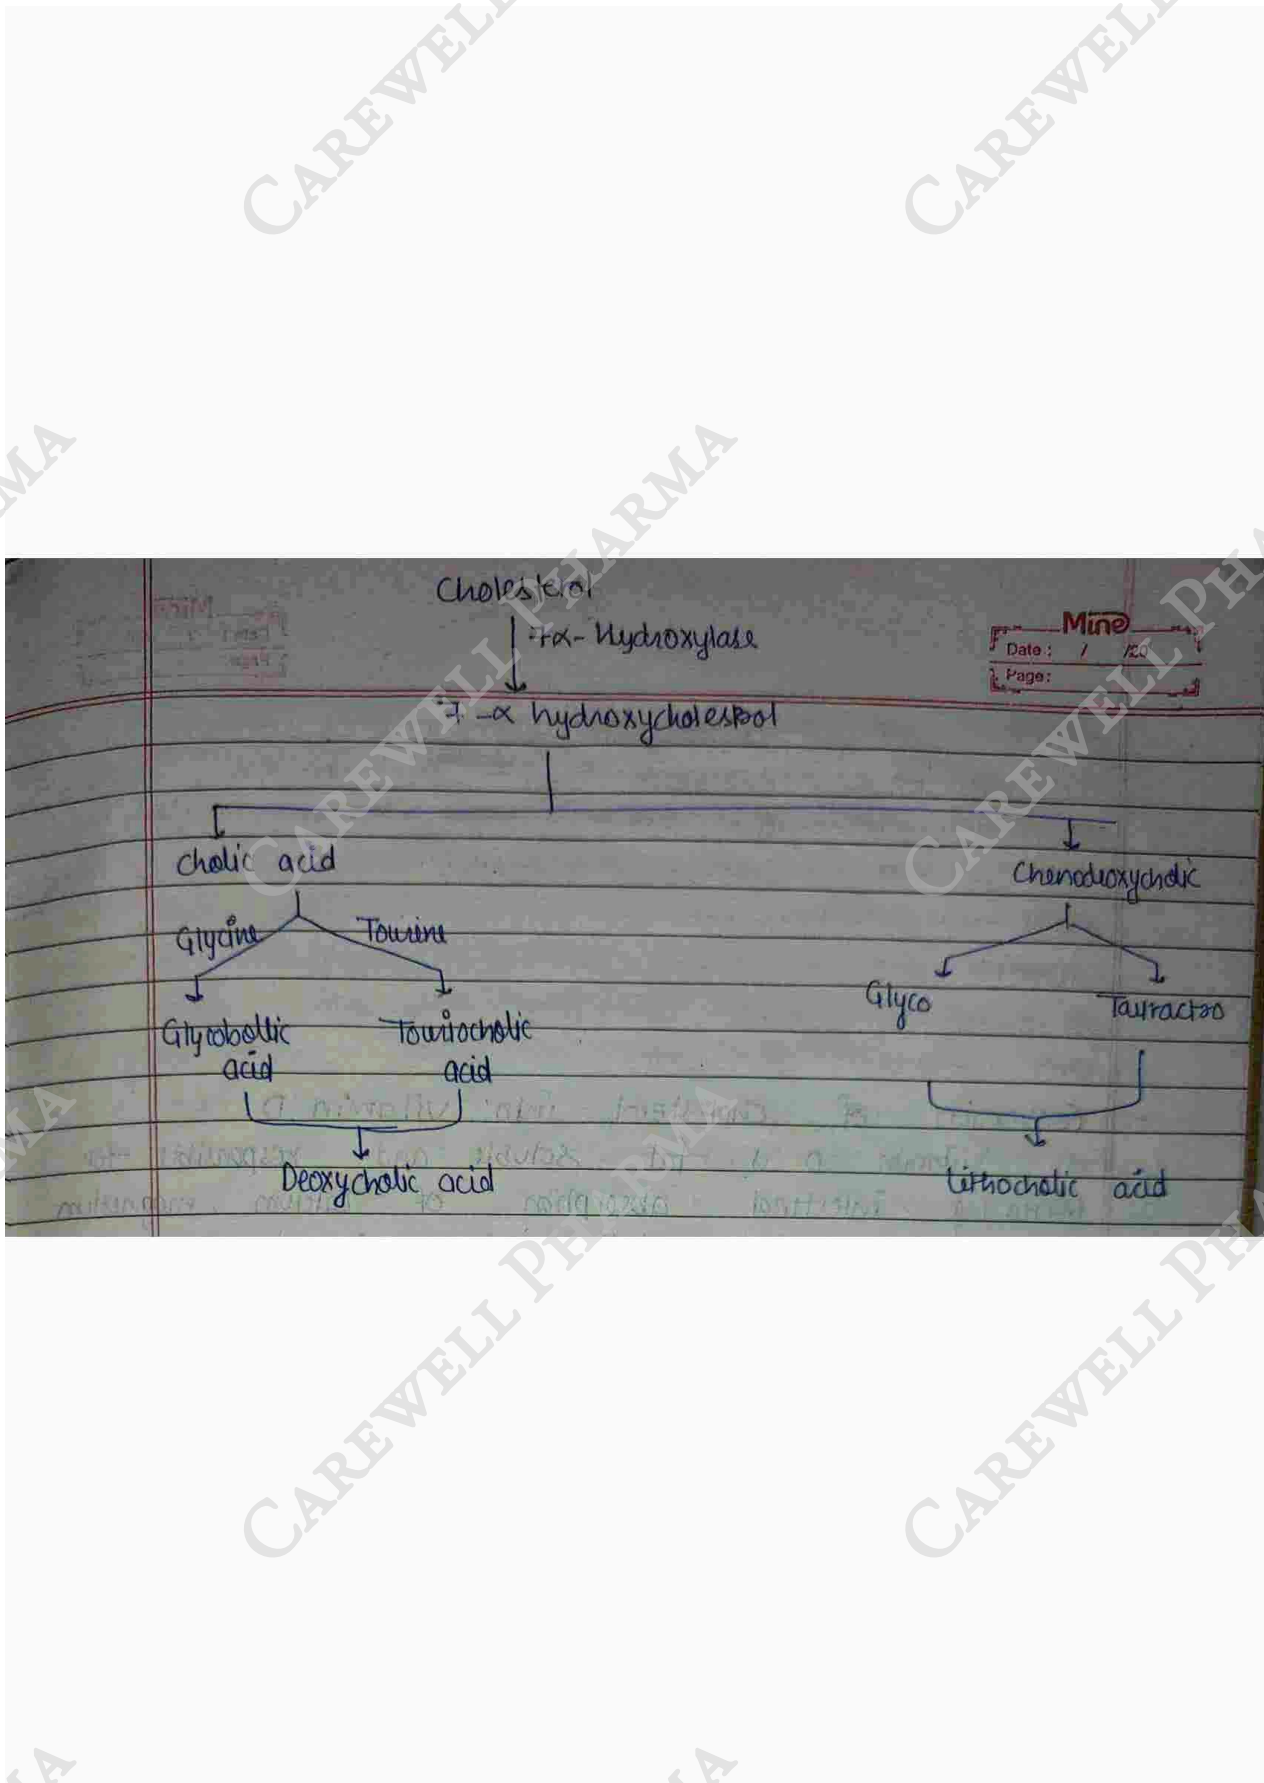 CAREWELL PHARMA
Cholesterol
7α- Hydroxylase
Mine
Date : / /20
Page:
7-α hydroxycholestrol
cholic acid
Chenodeoxycholic
Glycine Tourine
Glyco Tauracteo
Glycobollic Tourocholic
acid acid
Deoxycholic acid
Lithocholic acid